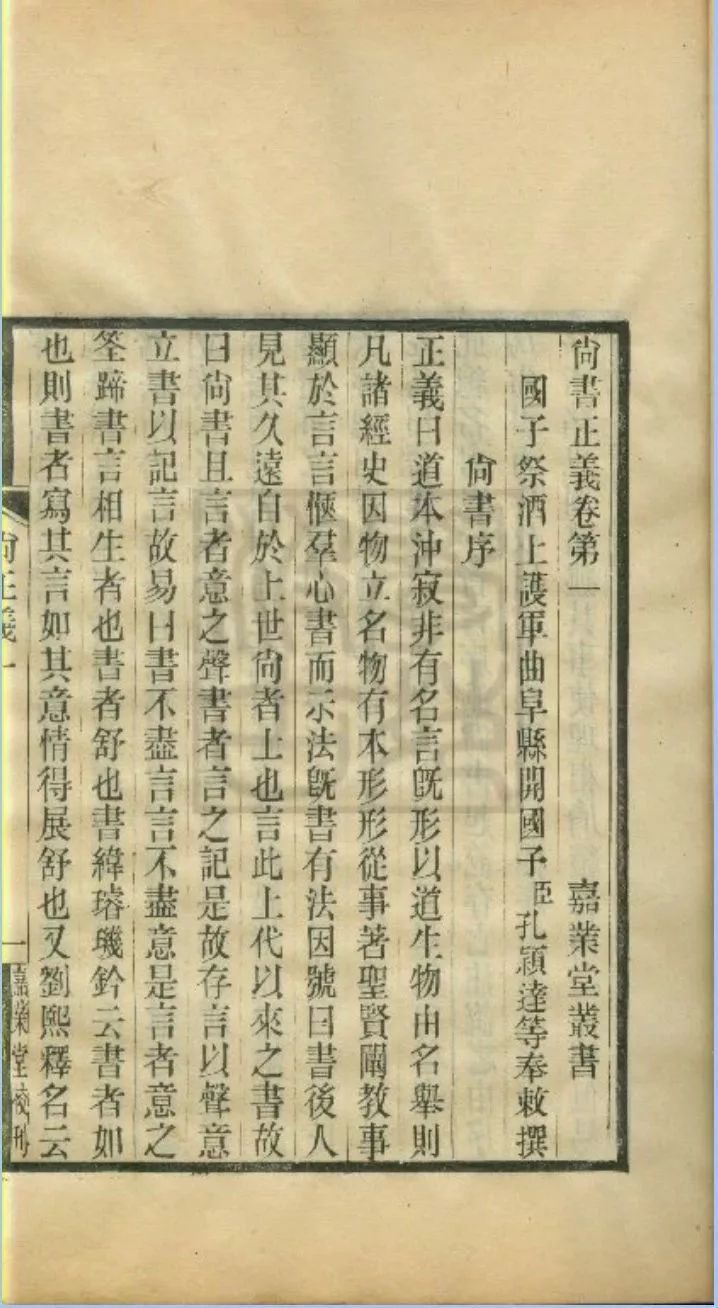 尙書正義卷第一 嘉業堂叢書
國子祭酒上護軍曲阜縣開國子臣孔穎達等奉敕撰
尙書序
正義曰道本沖寂非有名言旣形以道生物由名舉則
凡諸經史因物立名物有本形形從事著聖賢闡教事
顯於言言愜羣心書而示法旣書有法因號曰書後人
見其久遠自於上世尙者上也言此上代以來之書故
曰尙書且言者意之聲書者言之記是故存言以聲意
立書以記言故易曰書不盡言言不盡意是言者意之
筌蹄書言相生者也書者舒也書緯璿璣鈐云書者如
也則書者寫其言如其意情得展舒也又劉熙釋名云
尙正義一
一
嘉業堂校刊